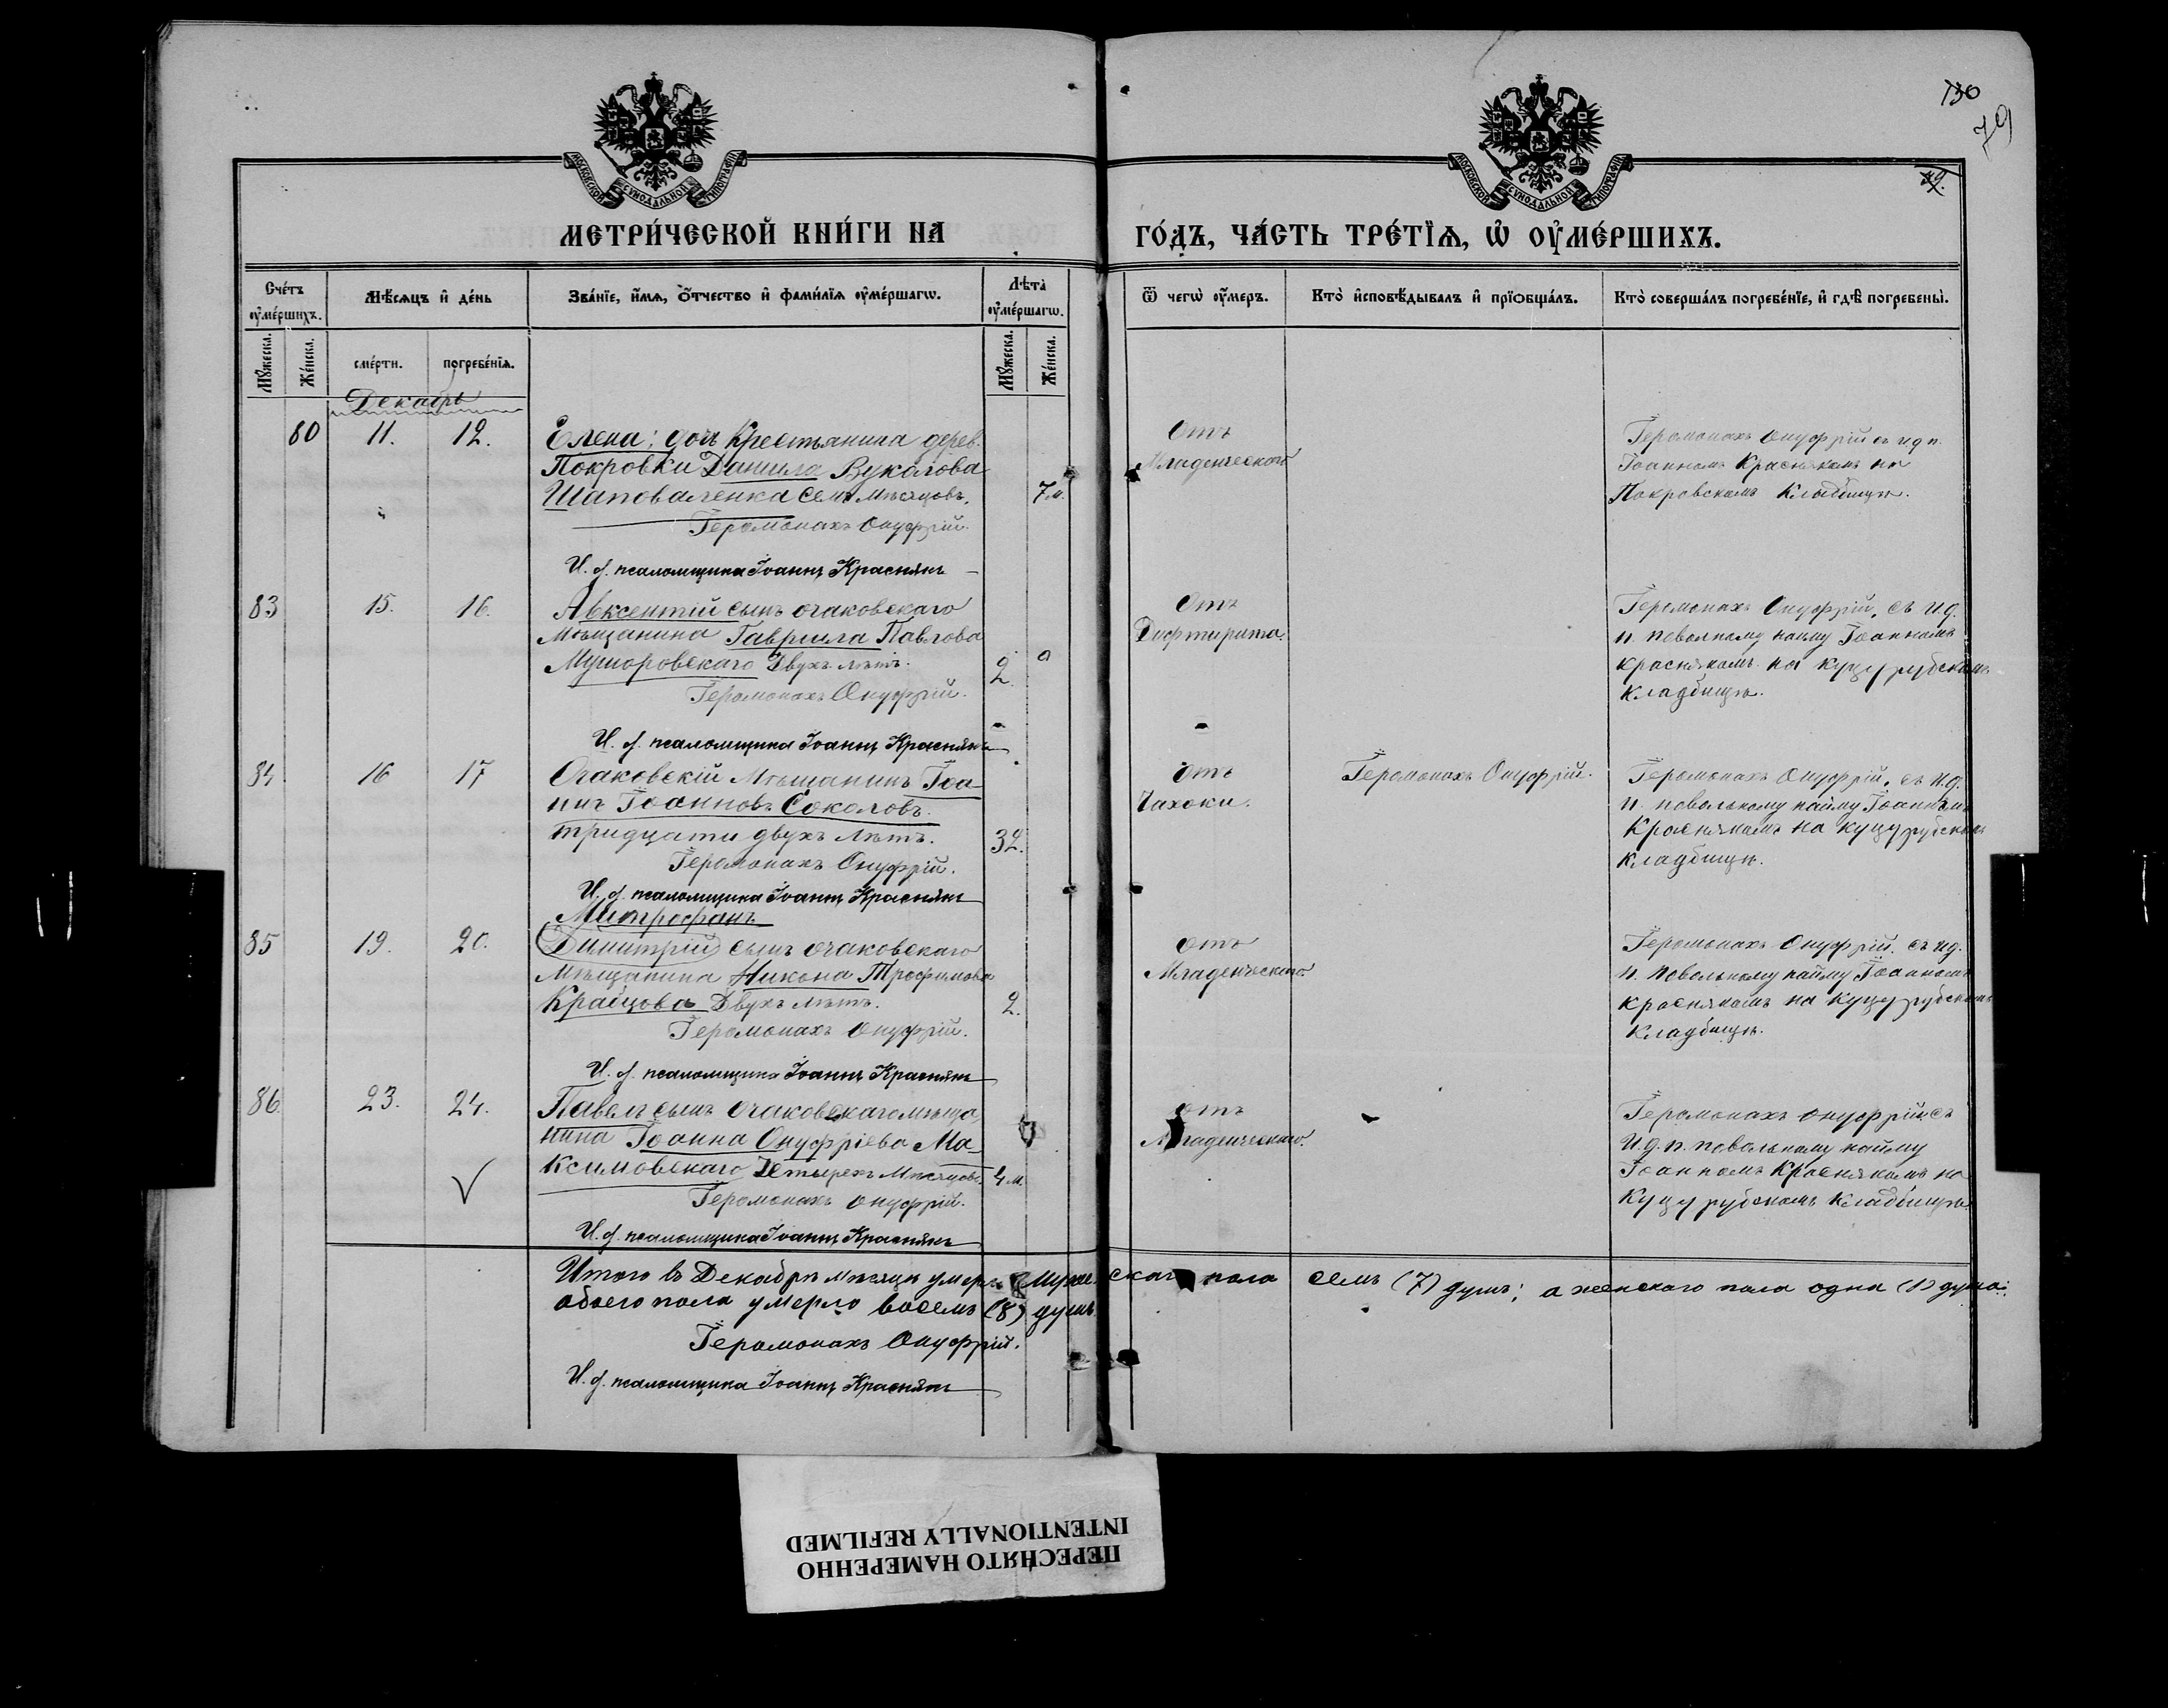 130
79
МОСКОВСКОЙ СѴНОДАЛЬНОЙ ТИПОГРАФІИ
МОСКОВСКОЙ СѴНОДАЛЬНОЙ ТИПОГРАФІИ
МЕТРИ́ЧЕСКОЙ КНИ́ГИ НА
ГО́ДЪ, ЧА́СТЬ ТРЕ́ТЇѦ, Ѡ҆ ОУ҆МЕ́РШИХЪ.
Сче́тъ оу҆ме́ршихъ.
Мѣ́сѧцъ и҆ де́нь
Зва́нїе, и҆́мѧ, ѻ҆́тчество и҆ фами́лїѧ оу҆ме́ршагѡ.
Лѣта̀ оу҆ме́ршагѡ.
Ѿ чегѡ̀ оу҆́меръ.
Кто̀ и҆сповѣ́дывалъ и҆ прїѻбща́лъ.
Кто̀ соверша́лъ погребе́нїе, и҆ гдѣ̀ погребены̀.
Мꙋ́жеска.
Же́нска.
сме́рти.
погребе́нїѧ.
Мꙋ́жеска.
Же́нска.
Декабрь
80 11. 12. Елена: дочь Крестьянина дерев.
Покровки Данила Вуколова
Шаповаленка семь мѣсяцовъ. 7 м.
Іеромонахъ Онуфрій.
И. д. псаломщика Іоаннъ Краснякъ
Отъ
Младенческаго
Іеромонахъ Онуфрій съ и д п.
Іоанномъ Краснякомъ на
Покровскомъ Кладбищѣ.
83 15. 16. Авксентій сынъ очаковскаго
Мѣщанина Гавриила Павлова
Мушоровскаго Двухъ лѣтъ. 2.
Іеромонахъ Онуфрій.
И. д. псаломщика Іоаннъ Краснякъ
Отъ
Дифтирита.
Іеромонахъ Онуфрій, съ И.д.
п. повольному найму Іоанномъ
краснякомъ на куцурубскомъ
кладбищѣ.
84 16 17 Очаковскій Мѣщанинъ Іоа-
ннъ Іоанновъ Соколовъ.
тридцати двухъ лѣтъ. 32.
Іеромонахъ Онуфрій.
И. д. псаломщика Іоаннъ Краснякъ
Отъ
Чахоки.
Іеромонахъ Онуфрій.
Іеромонахъ Онуфрій, съ И.д.
п. повольному найму Іоанномъ
Краснякомъ на куцурубскомъ
кладбищѣ.
Митрофанъ
85 19. 20. Димитрій сынъ очаковскаго
Мѣщанина Никона Трофимова
Кравцова Двухъ лѣтъ. 2.
Іеромонахъ Онуфрій.
И. д. псаломщика Іоаннъ Краснякъ
отъ
Младенческаго.
Іеромонахъ Онуфрій. съ ид.
п. повольному найму Іоанномъ
краснякомъ на куцурубскомъ
Кладбищѣ.
86 23. 24. Павелъ сынъ очаковскаго мѣща
нина Іоанна Онуфріева Ма-
ксимовскаго Четырехъ Мѣсяцовъ. 4 м.
Іеромонахъ онуфрій.
И. д. псаломщика Іоаннъ Краснякъ
отъ
Младенческаго.
Іеромонахъ онуфрій съ
И.д.п. повольному найму
Іоанномъ Краснякомъ на
Куцурубскомъ Кладбищѣ
Итого въ Декабрѣ мѣсяцѣ умерло мужескаго пола семь (7) душъ; а женскаго пола одна (1) душа;
обоего пола умерло восемь (8) душъ.
Іеромонахъ Онуфрій.
И. д. псаломщика Іоаннъ Краснякъ
ПЕРЕСНЯТО НАМЕРЕННО
INTENTIONALLY REFILMED